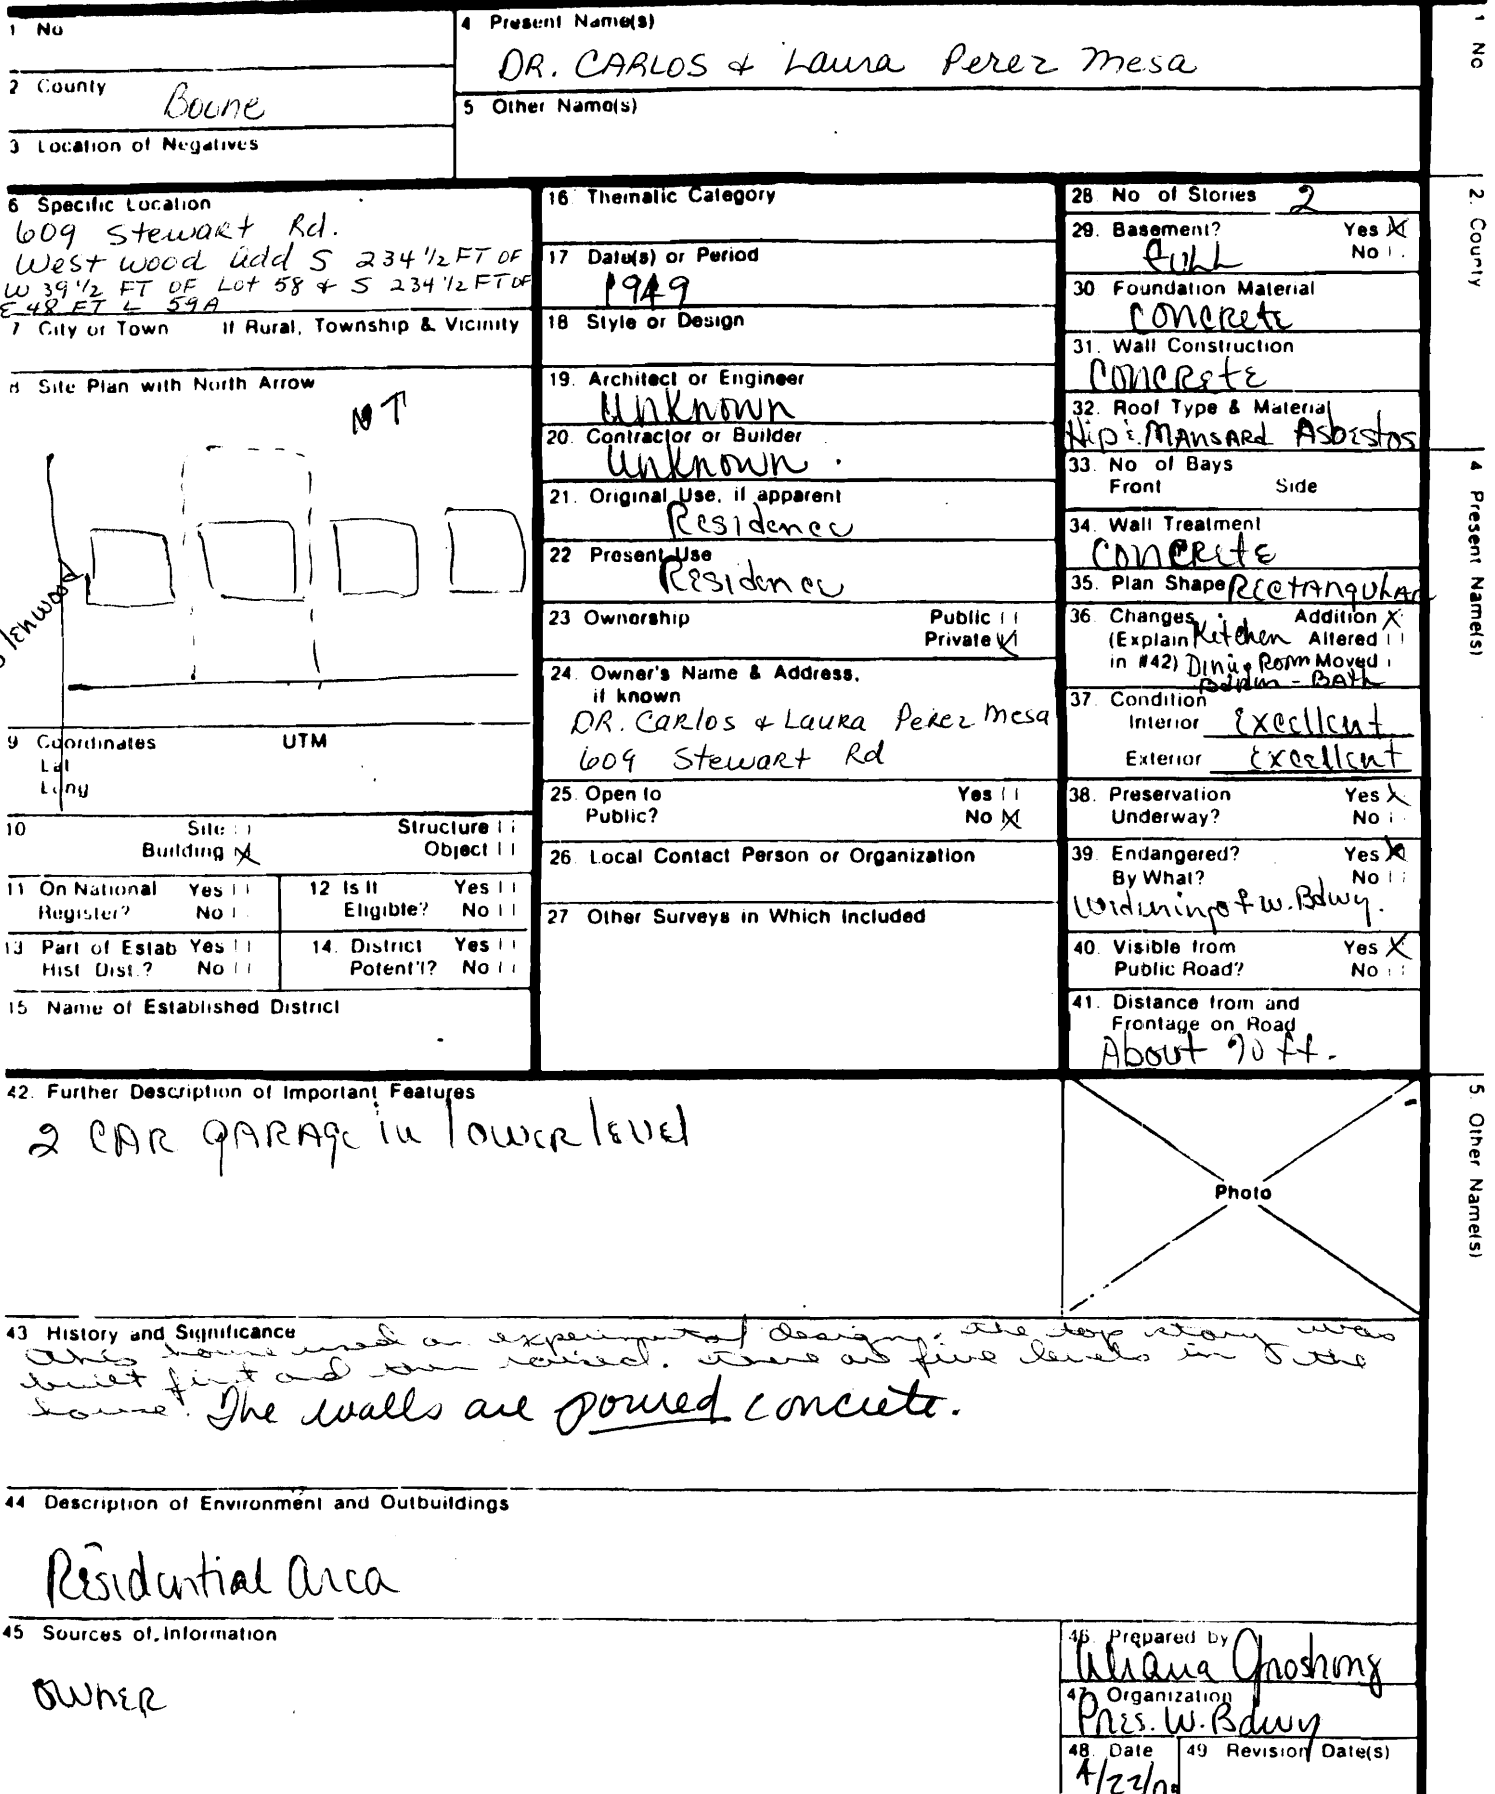 1 No
2 County
Boone
3 Location of Negatives
4 Present Name(s)
DR. CARLOS & Laura Perez Mesa
5 Other Name(s)
6 Specific Location
609 Stewart Rd.
West wood add S 234 1/2 FT OF
W 39 1/2 FT OF Lot 58 & S 234 1/2 FT OF
E 48 FT L 59A
7 City or Town If Rural, Township & Vicinity
8 Site Plan with North Arrow
N
Glenwood
9 Coordinates UTM
Lat
Long
10 Site Structure
Building X Object
11 On National Register? Yes No
12 Is It Eligible? Yes No
13 Part of Estab Hist Dist.? Yes No
14. District Potent'l? Yes No
15 Name of Established District
16. Thematic Category
17 Date(s) or Period
1949
18 Style or Design
19. Architect or Engineer
Unknown
20. Contractor or Builder
Unknown.
21. Original Use, if apparent
Residence
22 Present Use
Residence
23 Ownership Public
Private X
24. Owner's Name & Address,
if known
DR. CARLOS & LAURA Perez Mesa
609 Stewart Rd
25. Open to Yes
Public? No X
26. Local Contact Person or Organization
27 Other Surveys in Which Included
28. No of Stories 2
29. Basement? Yes X
Full No
30 Foundation Material
Concrete
31. Wall Construction
Concrete
32. Roof Type & Material
Hip & Mansard Asbestos
33. No of Bays
Front Side
34. Wall Treatment
Concrete
35. Plan Shape Rectangular
36. Changes Addition X
(Explain Kitchen Altered
in #42) Dining Room Moved
Bdrm - Bath
37. Condition
Interior Excellent
Exterior Excellent
38. Preservation Yes X
Underway? No
39. Endangered? Yes X
By What? No
Widening of W. Bdwy.
40. Visible from Yes X
Public Road? No
41. Distance from and
Frontage on Road
About 90 ft.
42. Further Description of Important Features
2 CAR GARAGE in lower level
Photo
43 History and Significance
This house used an experimental design. the top story was
built first and then raised. There are five levels in the
house. The walls are poured concrete.
44 Description of Environment and Outbuildings
Residential area
45 Sources of Information
OWNER
46. Prepared by
Groshong
47. Organization
Pres. W. Bdwy
48. Date
4/22/
49 Revision Date(s)
1 No
2. County
4 Present Name(s)
5. Other Name(s)